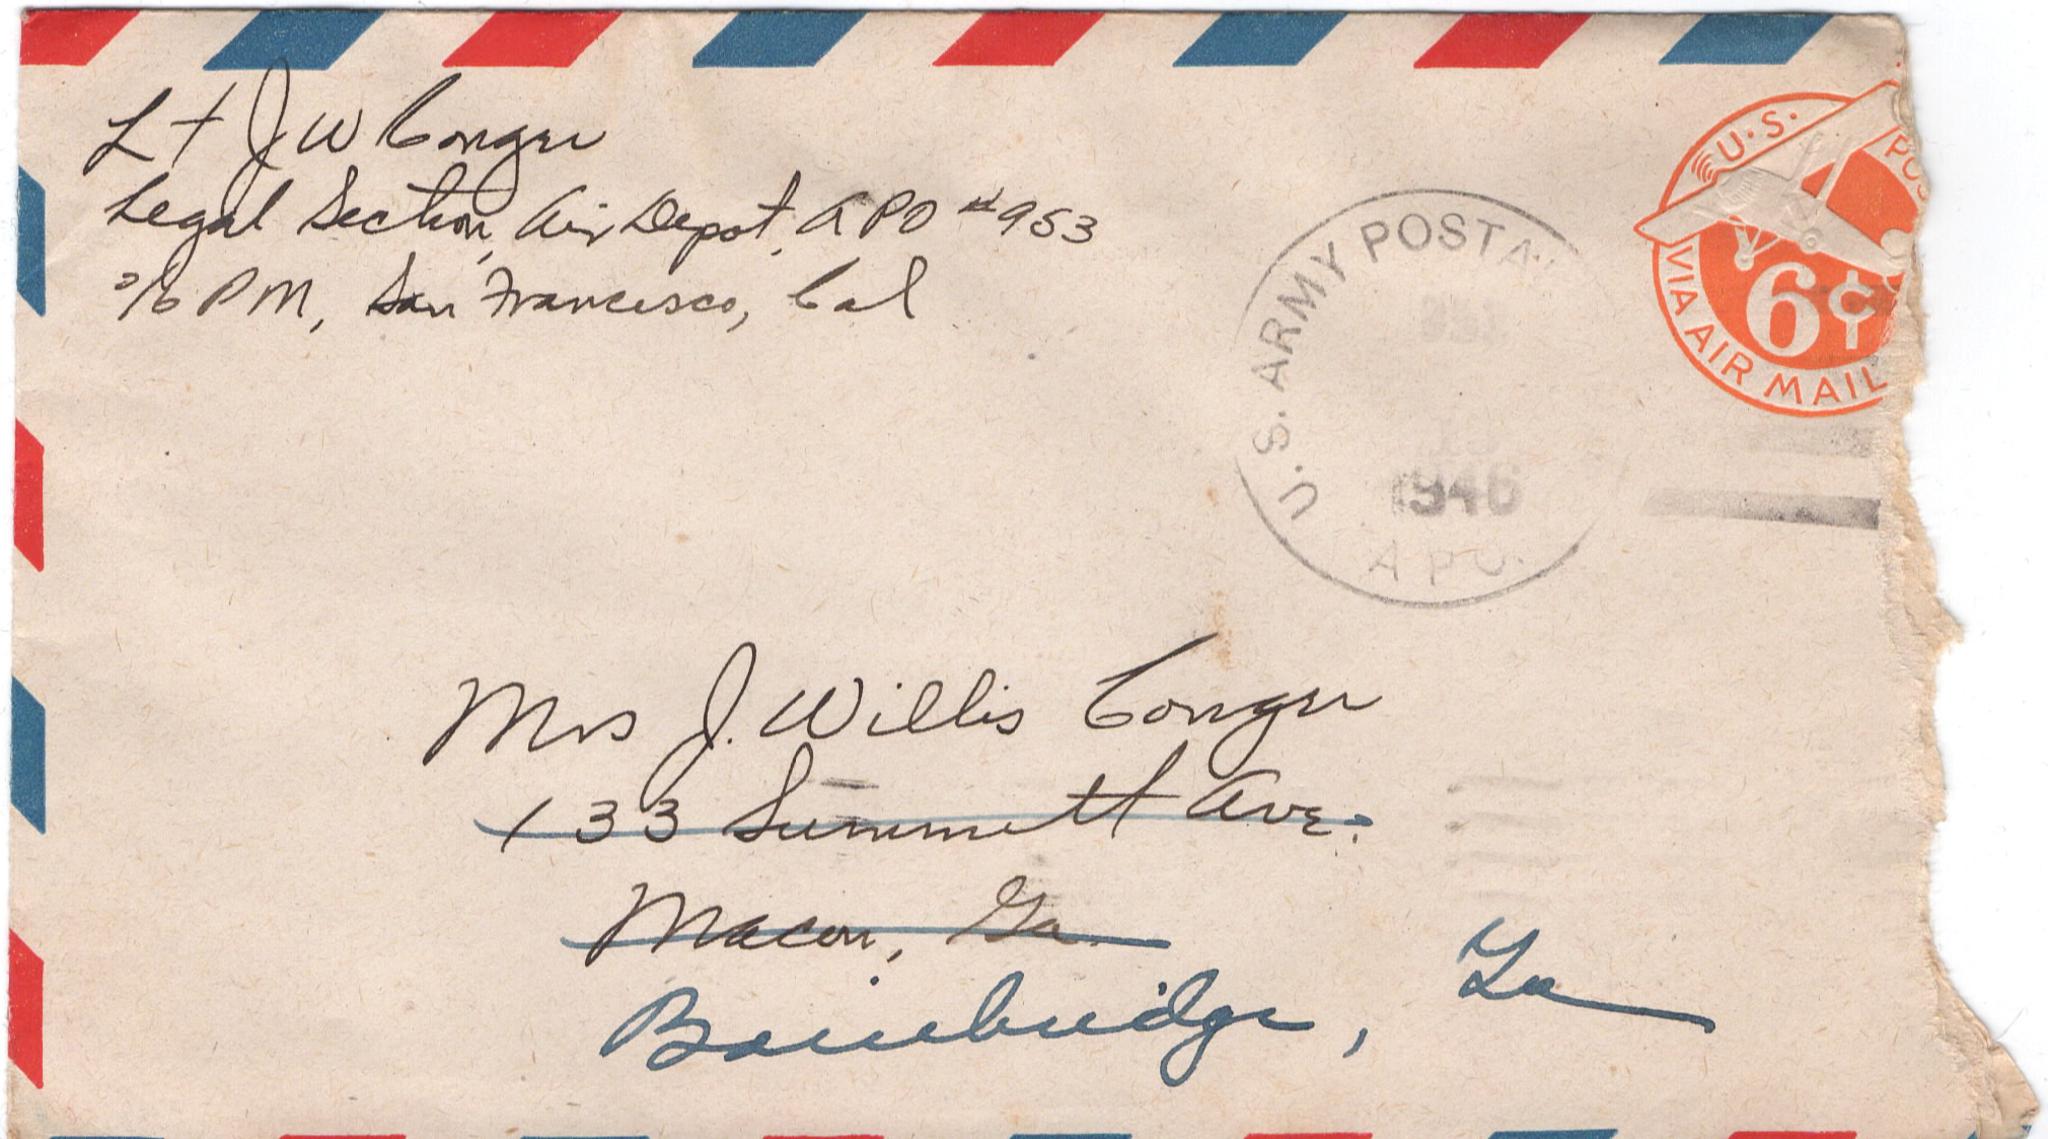 Lt J W Conger
Legal Section, Air Depot, APO #953
c/o PM, San Francisco, Cal
U.S. POS
VIA AIR MAIL
6¢
U.S. ARMY POSTAL
1946
A P O.
Mrs J. Willis Conger
133 Summett Ave.
Macon, Ga.
Bainbridge, Ga